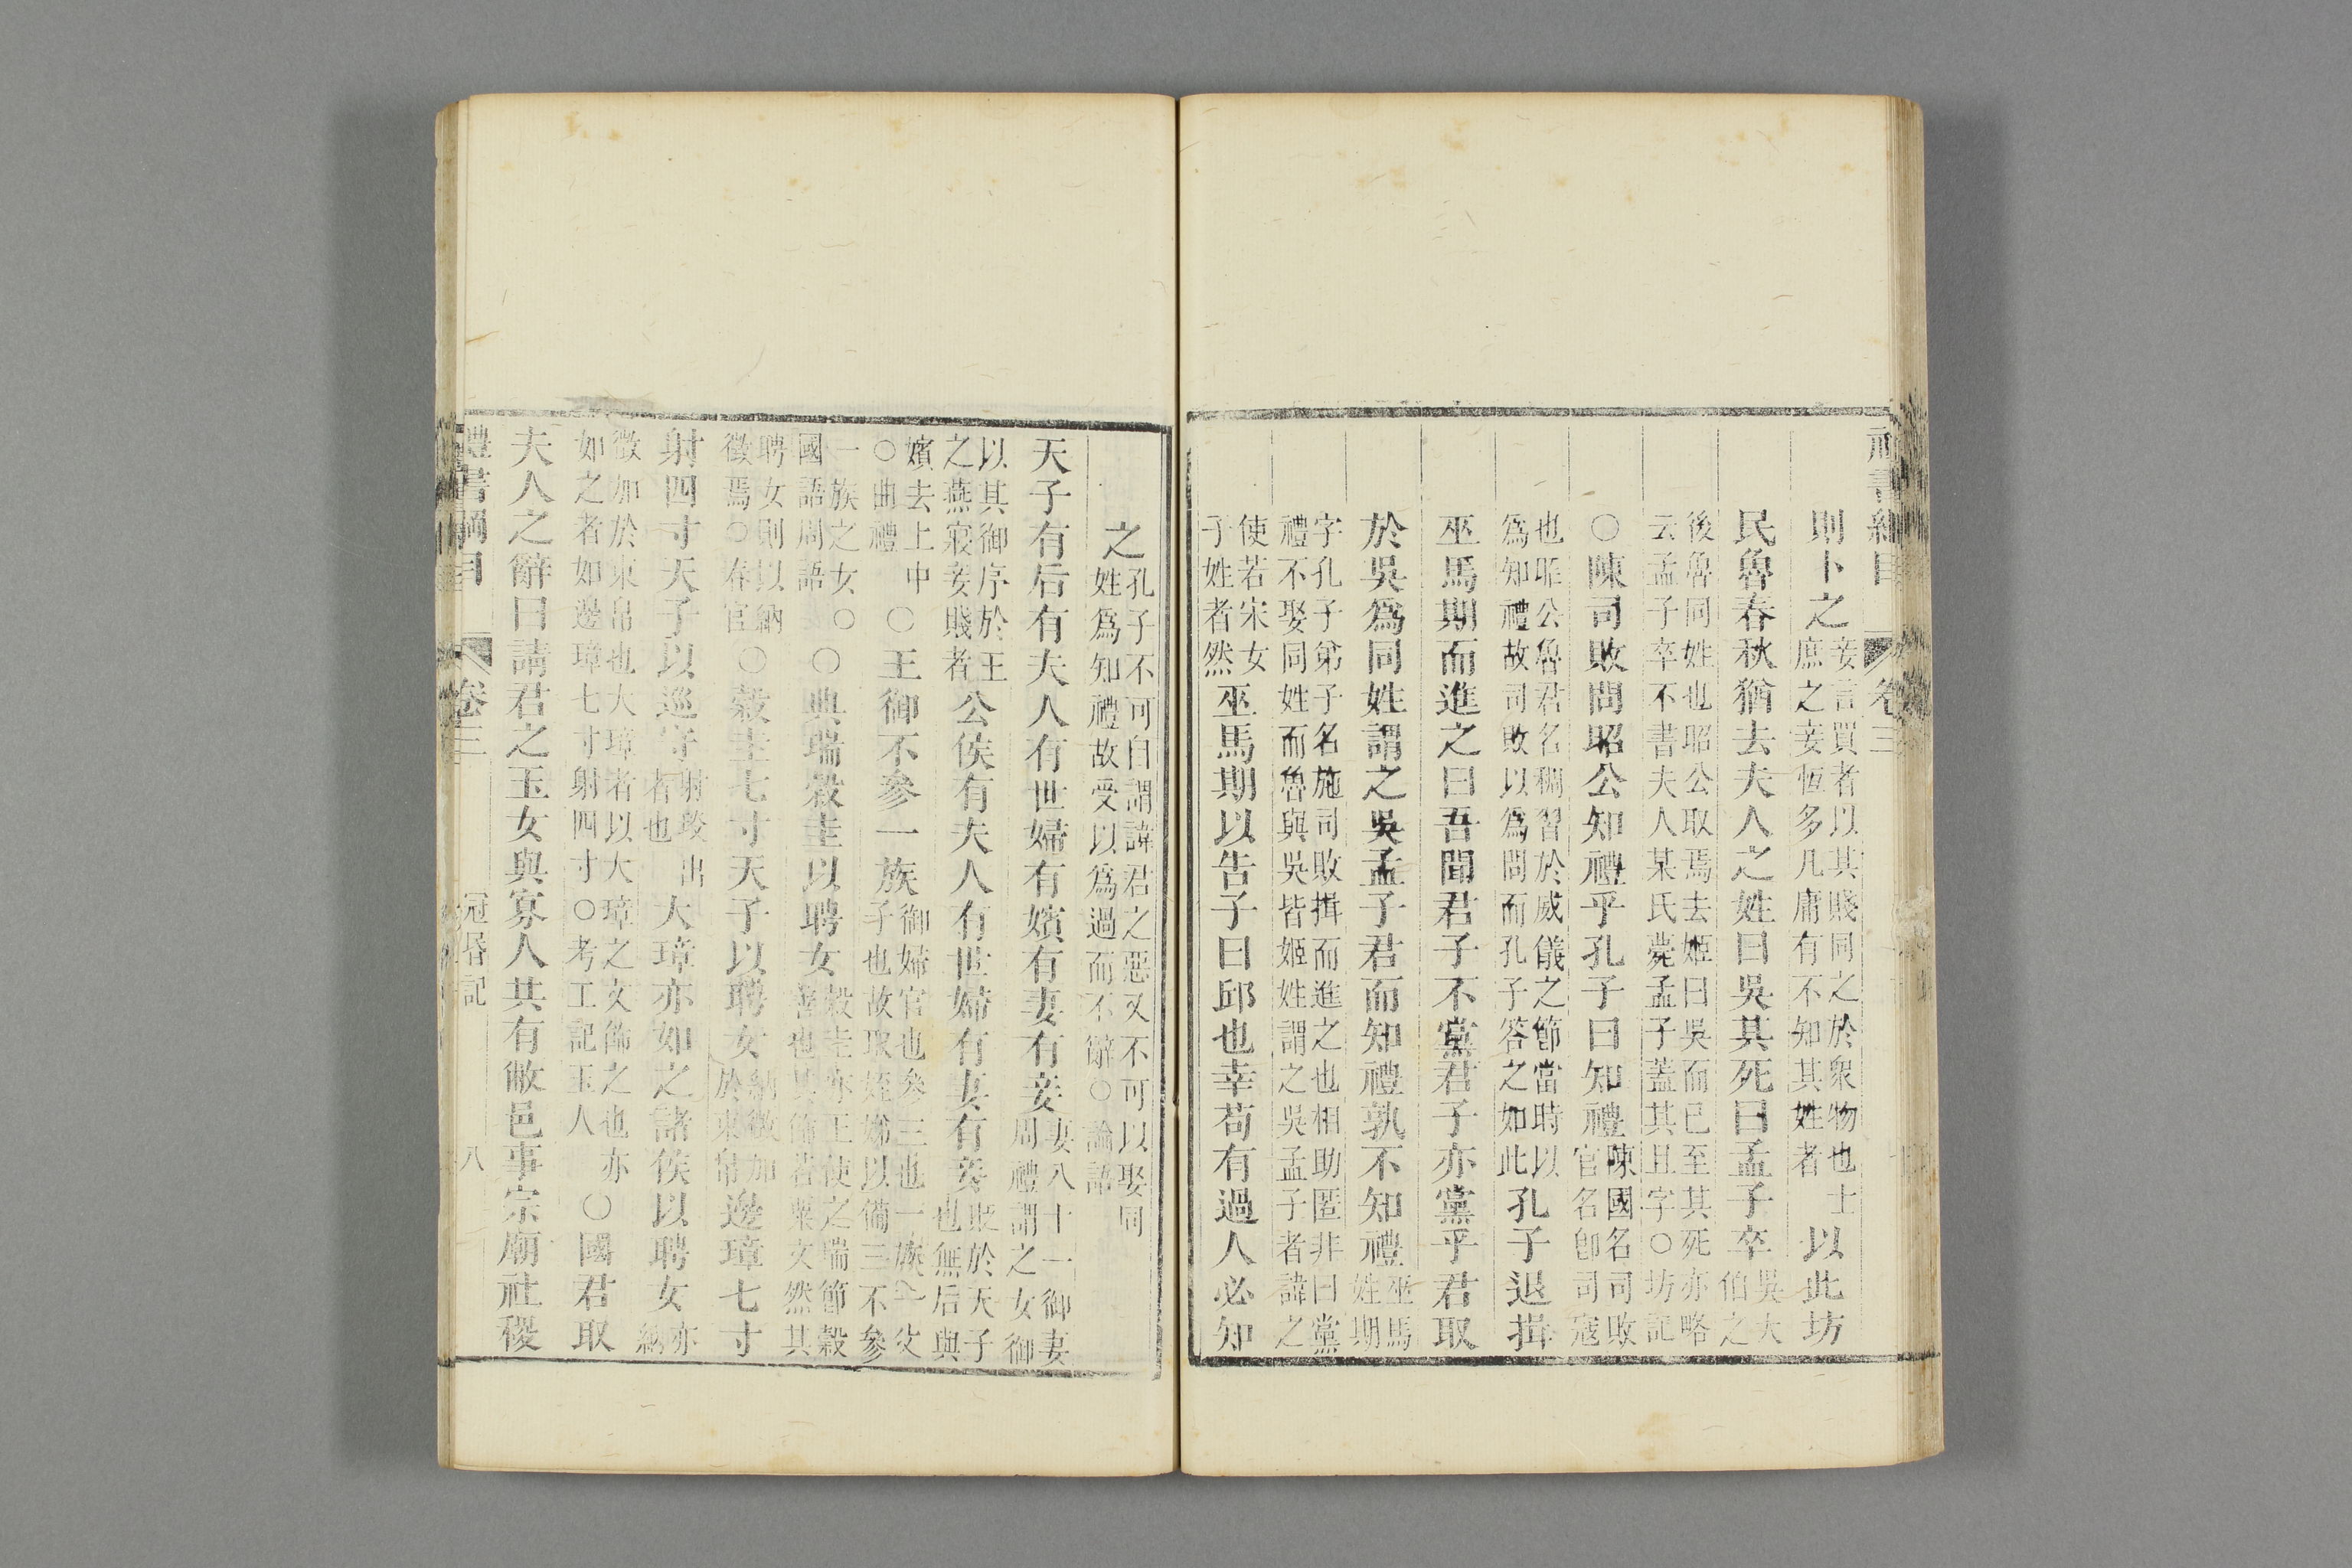 禮書綱目 卷三
則卜之妾言買者以其賤同之於衆物也士庶之妾恆多凡庸有不知其姓者以此坊
民魯春秋猶去夫人之姓曰吳其死曰孟子卒吳大伯之
後魯同姓也昭公取焉去姬曰吳而已至其死亦略云孟子卒不書夫人某氏薨孟子蓋其且字○坊記
○陳司敗問昭公知禮乎孔子曰知禮陳國名司敗官名卽司寇
也昭公魯君名稠習於威儀之節當時以爲知禮故司敗以爲問而孔子答之如此孔子退揖
巫馬期而進之曰吾聞君子不黨君子亦黨乎君取
於吳爲同姓謂之吳孟子君而知禮孰不知禮巫馬姓期
字孔子弟子名施司敗揖而進之也相助匿非曰黨禮不娶同姓而魯與吳皆姬姓謂之吳孟子者諱之
使若宋女子姓者然巫馬期以告子曰邱也幸苟有過人必知
之孔子不可自謂諱君之惡又不可以娶同姓爲知禮故受以爲過而不辭○論語
天子有后有夫人有世婦有嬪有妻有妾妻八十一御妻周禮謂之女御
以其御序於王之燕寢妾賤者公侯有夫人有世婦有妻有妾貶於天子也無后與
嬪去上中○曲禮○王御不參一族御婦官也參三也一族一父子也故取姪娣以備三不參
一族之女○國語周語○典瑞穀圭以聘女穀圭亦王使之瑞節穀善也其飾若粟文然其
聘女則以納徵焉○春官○穀圭七寸天子以聘女納徵加於束帛邊璋七寸
射四寸天子以巡守射琰出者也大璋亦如之諸侯以聘女亦納
徵加於束帛也大璋者以大璋之文飾之也亦如之者如邊璋七寸射四寸○考工記玉人○國君取
夫人之辭曰請君之玉女與寡人共有敝邑事宗廟社稷
禮書綱目 卷三 冠昬記 八